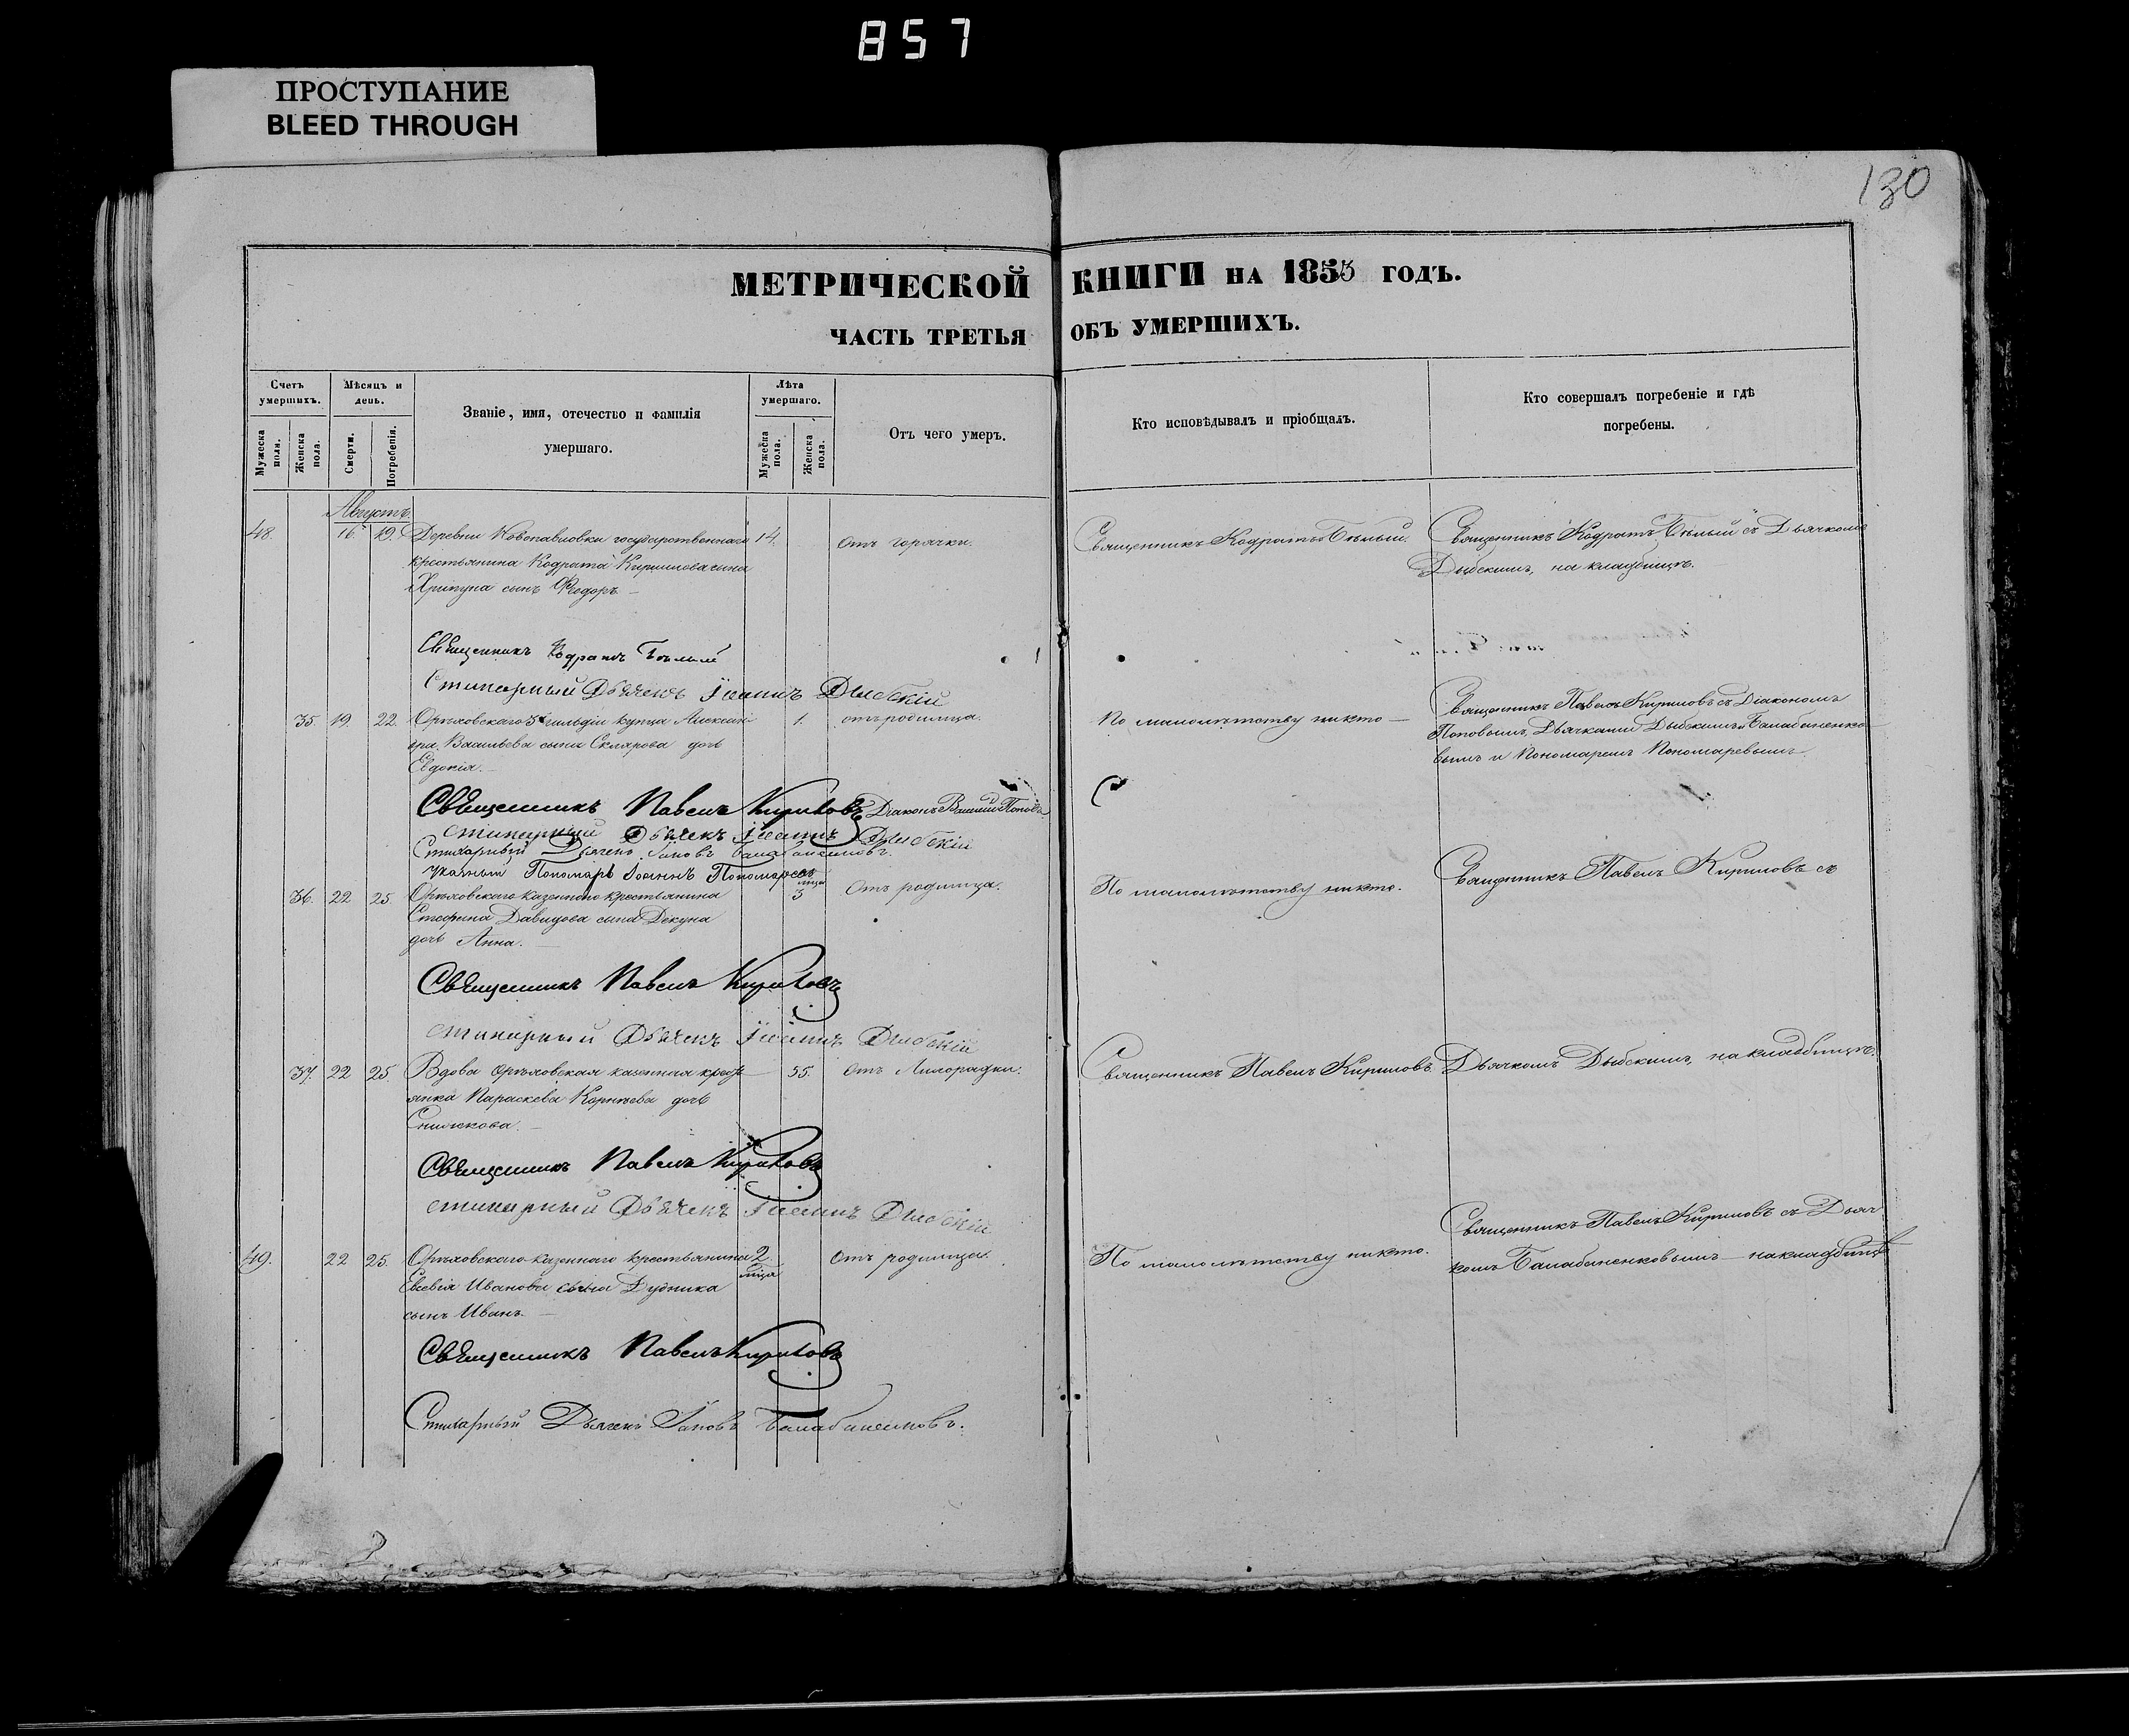 857
ПРОСТУПАНИЕ
BLEED THROUGH
130
МЕТРИЧЕСКОЙ КНИГИ НА 1853 ГОДЪ.
ЧАСТЬ ТРЕТЬЯ ОБЪ УМЕРШИХЪ.
Счетъ умершихъ.
Мѣсяцъ и день.
Званіе, имя, отечество и фамилія умершаго.
Лѣта умершаго.
Отъ чего умеръ.
Кто исповѣдывалъ и пріобщалъ.
Кто совершалъ погребеніе и гдѣ погребены.
Мужеска пола.
Женска пола.
Смерти.
Погребенія.
Мужеска пола.
Женска пола.
Августъ.
48. 16. 19. Деревни Новопавловки государственнаго 14. отъ горячки. Священникъ Кодратъ Бѣлый. Священникъ Кодратъ Бѣлый съ Дьячкомъ
крестьянина Кодрата Кириллова сына Дыбскимъ, на кладбищѣ.
Хрипуна сынъ Ѳеодоръ
Священникъ Кодратъ Бѣлый
Стихарный Дьячекъ Іоаннъ Дыбскій
35 19. 22. Орѣховскаго 3й гильдіи купца Алексан- 1. отъ родимца. По малолѣтству никто Священникъ Павелъ Кириловъ съ Діакономъ
дра Васильева сына Склярова дочь Поповымъ, Дьячками Дыбскимъ и Балабаненко-
Евдокія. вымъ и Пономаремъ Пономаревымъ
Священникъ Павелъ Кириловъ Діаконъ Василій Поповъ
стихарный Дьячекъ Іоаннъ Дыбскій
Стихарный Дьячекъ Іаковъ Балабаненковъ.
указный Пономарь Іоаннъ Пономаревъ
36. 22 25. Орѣховскаго казеннаго крестьянина 3 мѣца Отъ родимца. По малолѣтству никто. Священникъ Павелъ Кириловъ съ
Стефана Давидова сына Декуна
дочь Анна.
Священникъ Павелъ Кириловъ
стихарный Дьячекъ Іоаннъ Дыбскій
37. 22 25. Вдова орѣховская казенная крестья- 55. Отъ Лихорадки. Священникъ Павелъ Кириловъ. Дьячкомъ Дыбскимъ, на кладбищѣ.
янка Параскева Корнѣева дочь
Священникъ Павелъ Кириловъ
стихарный Дьячекъ Іоаннъ Дыбскій
49. 22 25. Орѣховскаго казеннаго крестьянина 2. мѣца Отъ родимца. По малолѣтству никто. Священникъ Павелъ Кириловъ съ Дьяч-
Евсевія Иванова сына Дудника комъ Балабаненковымъ на кладбищѣ
сынъ Иванъ.
Священникъ Павелъ Кириловъ
Стихарный Дьячекъ Іаковъ Балабаненковъ.